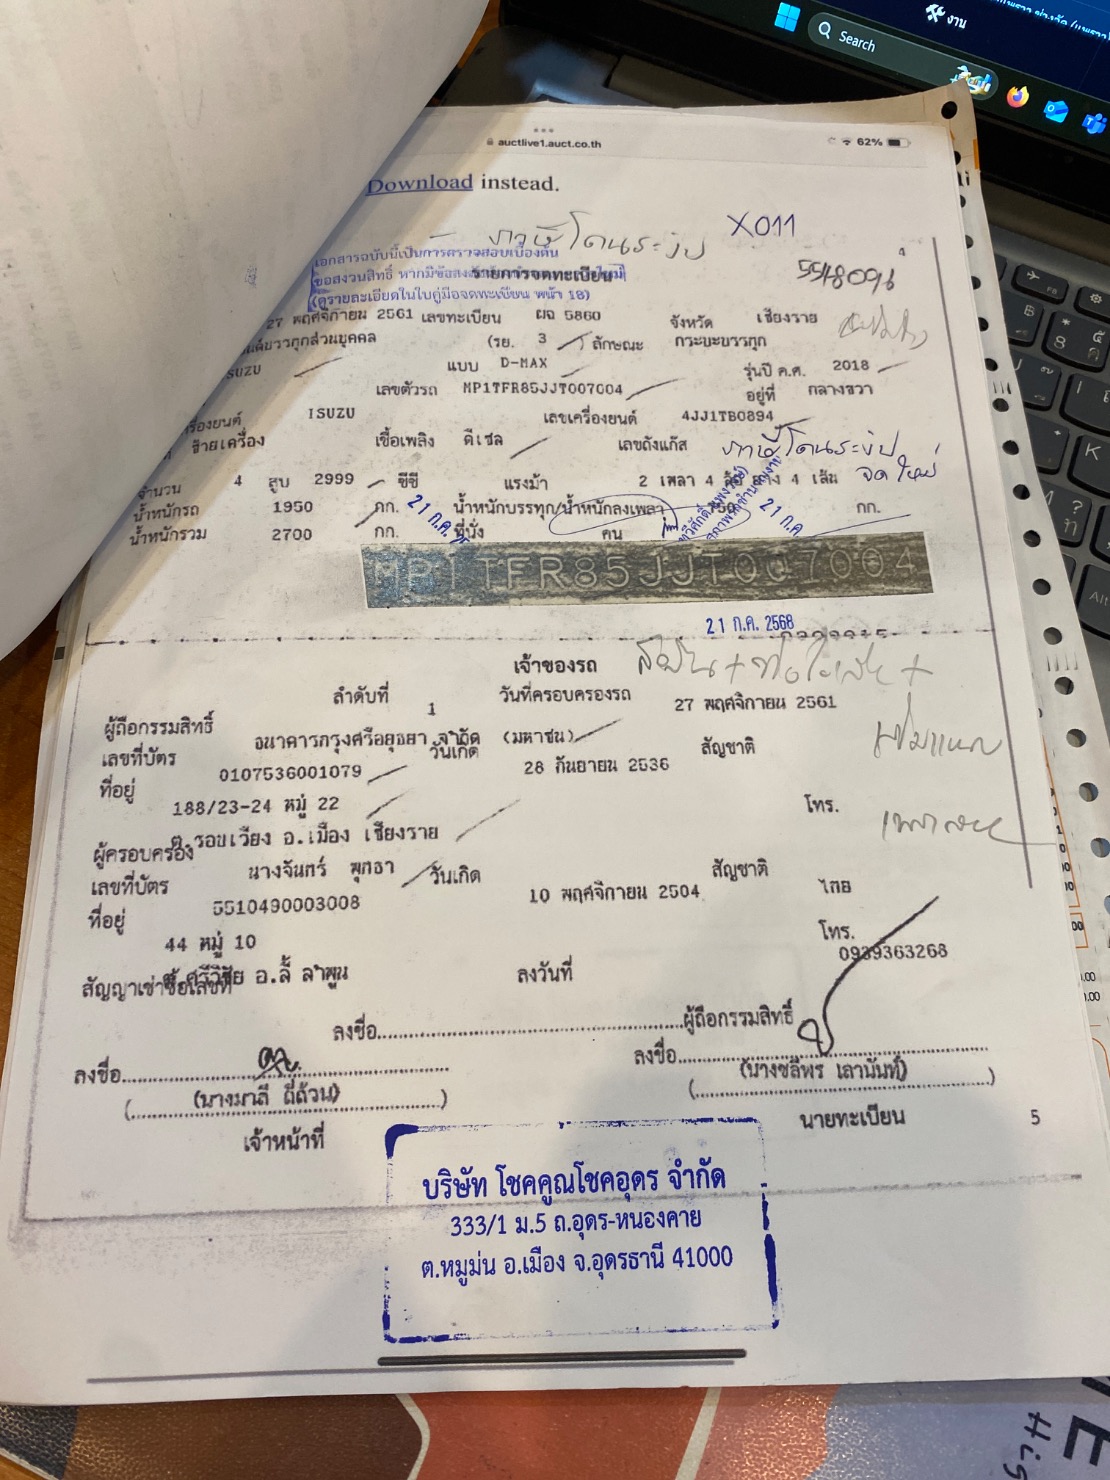 งาน
Search
auctlive1.auct.co.th
62%
Download instead.
X011
ภาษีโดนระงับ
4
เอกสารฉบับนี้เป็นการตรวจสอบเบื้องต้น
ขอสงวนสิทธิ์ หากมีข้อ
รายการจดทะเบียน
5518096
(ดูรายละเอียดในใบคู่มือจดทะเบียน หน้า 18)
27 พฤศจิกายน 2561 เลขทะเบียน ผฉ 5860 จังหวัด เชียงราย
นต์บรรทุกส่วนบุคคล (รย. 3 ) ลักษณะ กระบะบรรทุก
SUZU แบบ D-MAX รุ่นปี ค.ศ. 2018
เลขตัวรถ MP1TFR85JJT007004 อยู่ที่ กลางขวา
เครื่องยนต์ ISUZU เลขเครื่องยนต์ 4JJ1TB0894
ซ้ายเครื่อง เชื้อเพลิง ดีเซล เลขถังแก๊ส ภาษีโดนระงับ
จำนวน 4 สูบ 2999 ซีซี แรงม้า 2 เพลา 4 ล้อ ยาง 4 เส้น จดใหม่
น้ำหนักรถ 1950 กก. น้ำหนักบรรทุก/น้ำหนักลงเพลา 750 กก.
น้ำหนักรวม 2700 กก. ที่นั่ง คน
21 ก.ค.
21 ก.ค.
MP1TFR85JJT007004
21 ก.ค. 2568
เจ้าของรถ
ลำดับที่ 1 วันที่ครอบครองรถ 27 พฤศจิกายน 2561
ผู้ถือกรรมสิทธิ์ ธนาคารกรุงศรีอยุธยา จำกัด (มหาชน)
เลขที่บัตร 0107536001079 วันเกิด 28 กันยายน 2536 สัญชาติ
ที่อยู่ 188/23-24 หมู่ 22 โทร.
ต.รอบเวียง อ.เมือง เชียงราย
ผู้ครอบครอง นางจันทร์ พุทธา
เลขที่บัตร 5510490003008 วันเกิด 10 พฤศจิกายน 2504 สัญชาติ ไทย
ที่อยู่ 44 หมู่ 10 โทร. 0939363268
ต.ศรีวิชัย อ.ลี้ ลำพูน
สัญญาเช่าซื้อเลขที่ ลงวันที่
ลงชื่อ..........ผู้ถือกรรมสิทธิ์
ลงชื่อ.......... ลงชื่อ..........
(นางมาลี ถี่ถ้วน) (นางชลีพร เลานันท์)
เจ้าหน้าที่ นายทะเบียน
5
บริษัท โชคคูณโชคอุดร จำกัด
333/1 ม.5 ถ.อุดร-หนองคาย
ต.หมูม่น อ.เมือง จ.อุดรธานี 41000